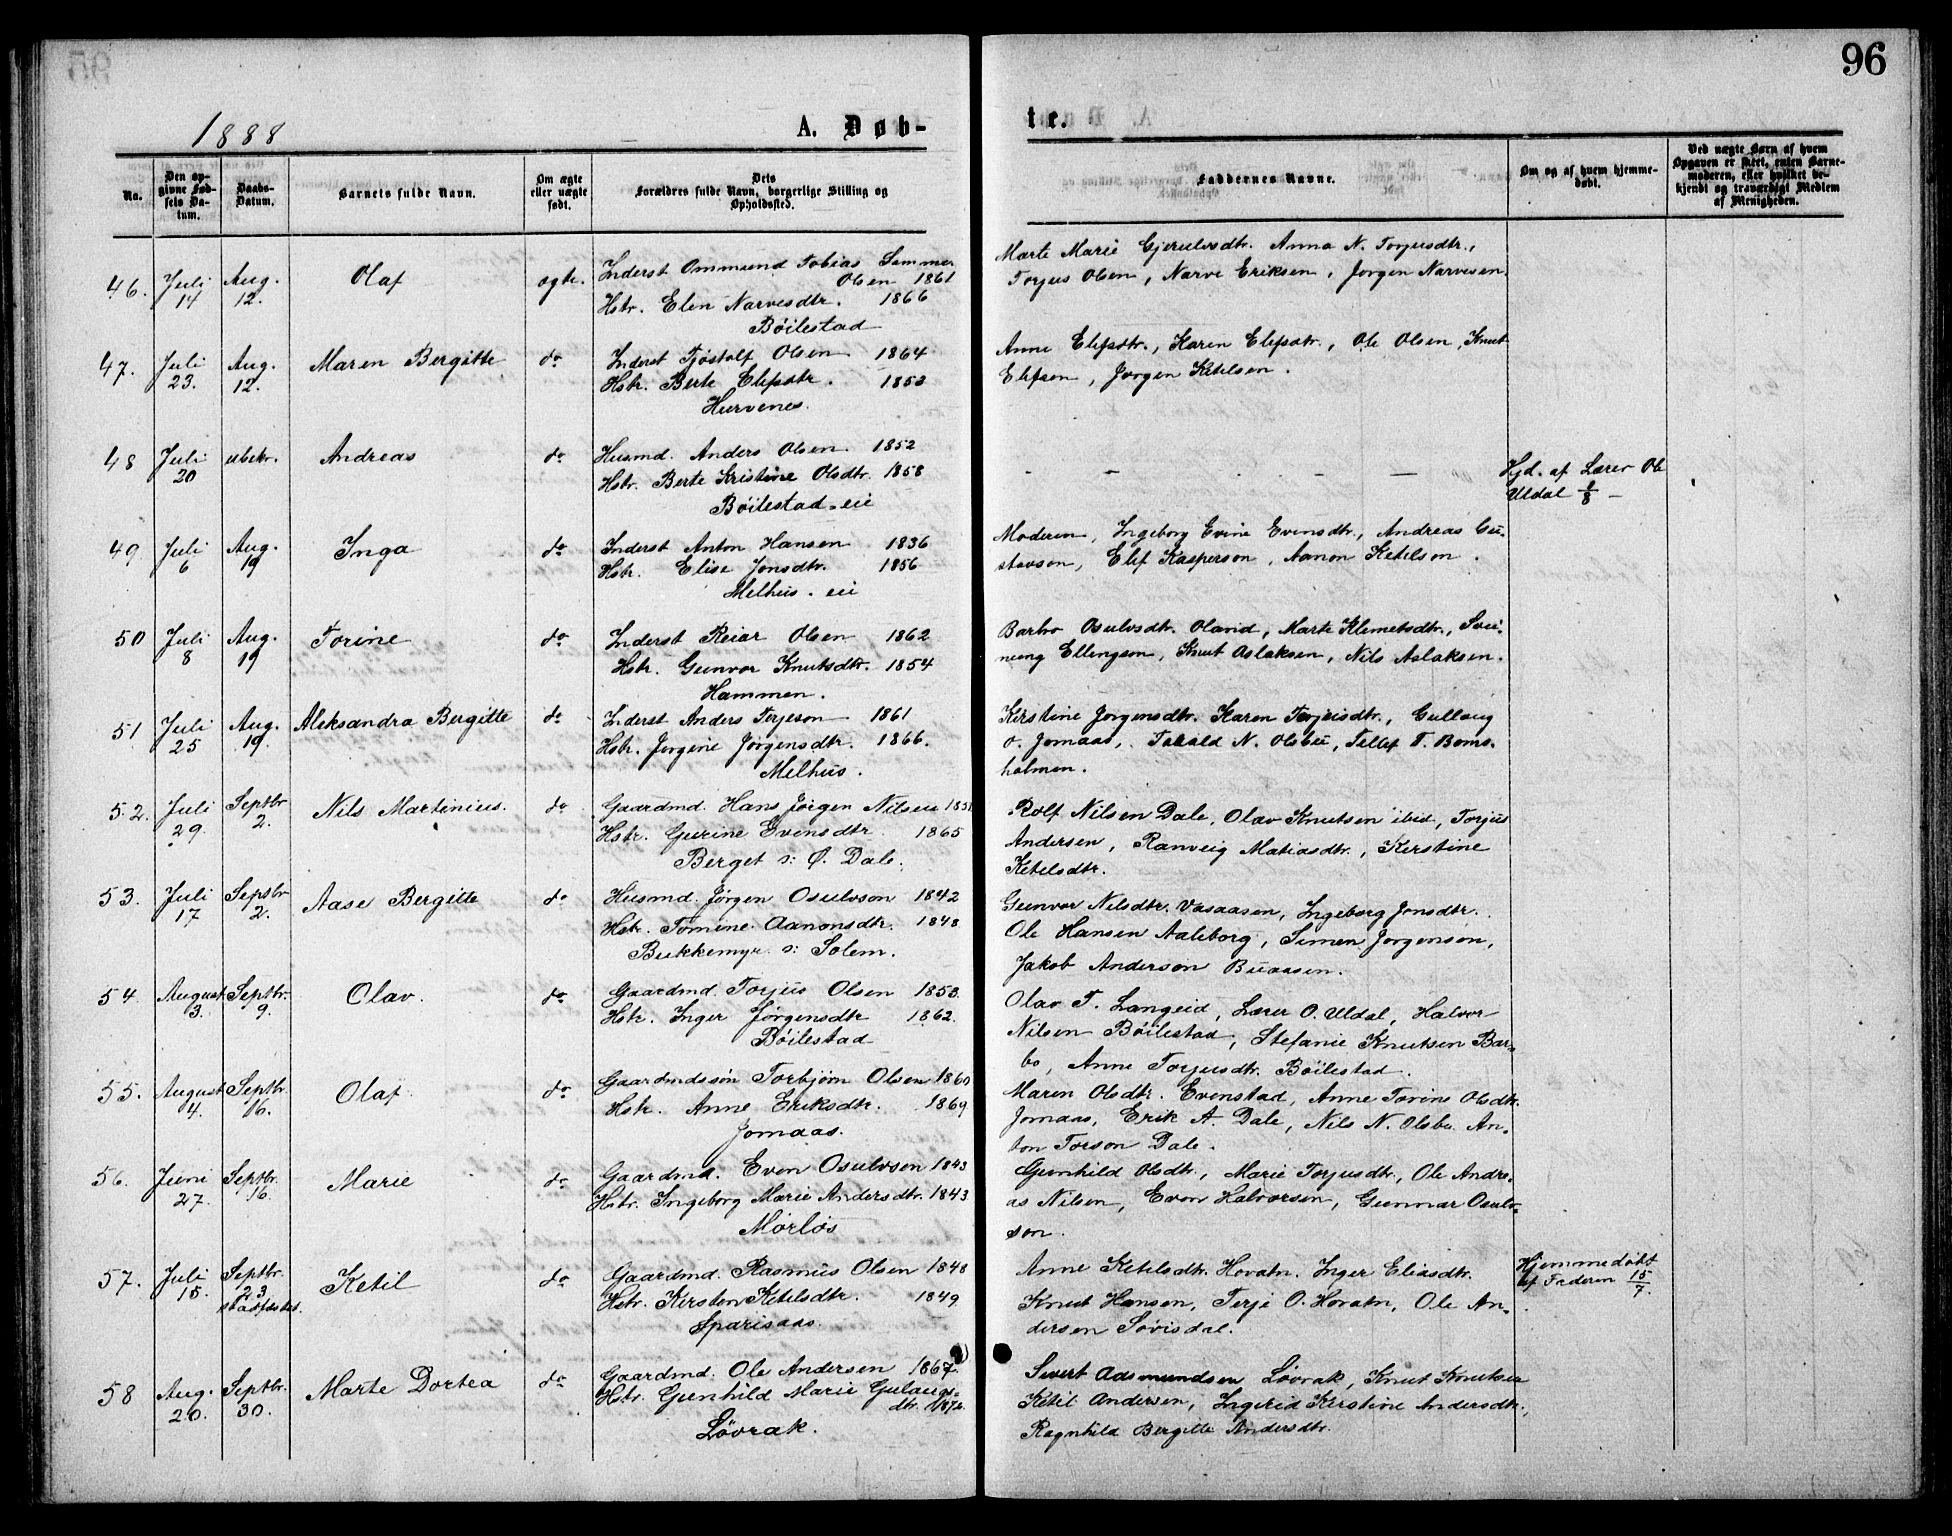 96
1888
A. Døb-
ter.
No.
Den op-
givne Fød-
sels Da-
tum.
Daabs-
Datum.
Barnets fulde Navn.
Om ægte
eller uægte
født.
Dets
Forældres fulde Navn, borgerlige Stilling og
Opholdssted.
Faddernes Navne.
Om og af hvem hjemme-
døbt.
Ved uægte Børn af hvem
Opgaven er skeet, enten Barne-
moderen, eller hvilket be-
kjendt og troværdigt Medlem
af Menigheden.
46. Juli 14 Aug. 12. Olaf ægte. Inderst Ommund Tobias Sommer
Olsen 1861
Hstr. Elen Narvesdtr. 1866
Böilestad
Marte Marie Gjerulvsdtr. Anna N. Torjusdtr.,
Torjus Olsen, Narve Eriksen, Jørgen Narvesen.
47. Juli 23. Aug. 12. Maren Bergitte do Inderst Tjöstolf Olsen 1864
Hstr. Berte Elefsdtr. 1853
Hurvenes.
Anne Elefsdtr., Karen Elefsdtr., Ole Olsen, Knut
Elefsen, Jørgen Ketilsen.
48 Juli 20 ubekr. Andreas do Husmd. Anders Olsen 1852
Hstr. Berte Kristine Olsdtr. 1858
Böilestad-eie
Hjd. af Lærer Ole
Uldal 1/8 —
49. Juli 6 Aug. 19 Inga do Inderst Anton Hansen 1836
Hstr. Elise Jonsdtr. 1856
Melhus-eie
Moderen, Ingeborg Evine Evensdtr., Andreas Gu-
stavson, Elef Kasperson, Aanon Ketilson.
50 Juli 8 Aug. 19 Torine do Inderst Reiar Olsen 1862
Hstr. Gunvor Knutsdtr. 1854
Hammen.
Barbro Osulvsdtr. Oland, Marte Klemetsdtr., Svei-
nung Ellengson, Knut Aslaksen, Nils Aslaksen.
51 Juli 25 Aug. 19. Aleksandra Bergitte do Inderst Anders Terjeson 1861
Hstr. Jørgine Jørgensdtr. 1866.
Melhus.
Kirstine Jørgensdtr. Karen Terjeisdtr., Gullaug
O. Jomaas, N. Olsbu, Tellef T. Boms-
holmen.
52. Juli 29. Septbr 2. Nils Martinius. do Gaardmd. Hans Jørgen Nilsen
Hstr. Gurine Evensdtr 1865
Berget s: Ö. Dale.
Rolf Nilsen Dale, Olav Knutsen ibid, Torjus
Andersen, Ranveig Matiasdtr., Kirstine
Ketilsdtr.
53. Juli 17 Septbr 2. Aase Bergitte do Husmd. Jørgen Osulvson 1842
Hstr. Tomine Aanonsdtr. 1848
Bukkemyr s: Solem.
Gunvor Nilsdtr. Vasaasen, Ingeborg Jonsdtr.
Ole Hansen Aaleborg, Simen Jørgenson,
Jakob Anderson Buaasen.
54. August 3. Septbr. 9. Olav. do Gaardmd. Torjus Olsen 1853.
Hstr. Inger Jørgensdtr 1862.
Böilestad
Olav T. Langeid, Lærer O. Uldal, Halvor
Nilsen Böilestad, Stefanie Knutsen Bar-
bo, Anne Torjusdtr. Böilestad.
55. August 4. Septbr. 16. Olaf. do Gaardmdssön Torbjörn Olsen 1860
Hstr. Anne Eriksdtr. 1869
Jomaas.
Maren Olsdtr. Evenstad, Anne Torine Olsdtr.
Jomaas, Erik A. Dale, Nils N. Olsbu. An-
ton Torson Dale.
56. Juni 27. Septbr. 16. Marie do Gaardmd. Even Osulvson 1843
Hstr. Ingeborg Marie Andersdtr. 1843
Mörlös
Gunhild Olsdtr., Marie Torjusdtr., Ole Andre-
as Nilsen, Even Halvorsen, Gunnar Osulv-
son.
57. Juli 15. Septbr. 23 stadfæstet. Ketil do Gaardmd. Rasmus Olsen 1848
Hstr. Kirsten Ketilsdtr. 1849.
Sparisaas.
Anne Ketilsdtr. Hovatn. Inger Eliasdtr.
Knut Hansen, Terje O. Hovatn, Ole An-
dersen Sövisdal.
Hjemmedøbt
af Faderen 15/7.
58 Aug. 20. Septbr. 30. Marte Dortea do Gaardmd. Ole Andersen 1867
Hstr. Gunhild Marie Gulaugs-
dtr.
Lövrak.
Sivert Aasmundsen Lövrak, Knut Knutsen
Ketil Andersen, Ingerid Kirstine Andersdtr.,
Ragnhild Bergitte Andersdtr.